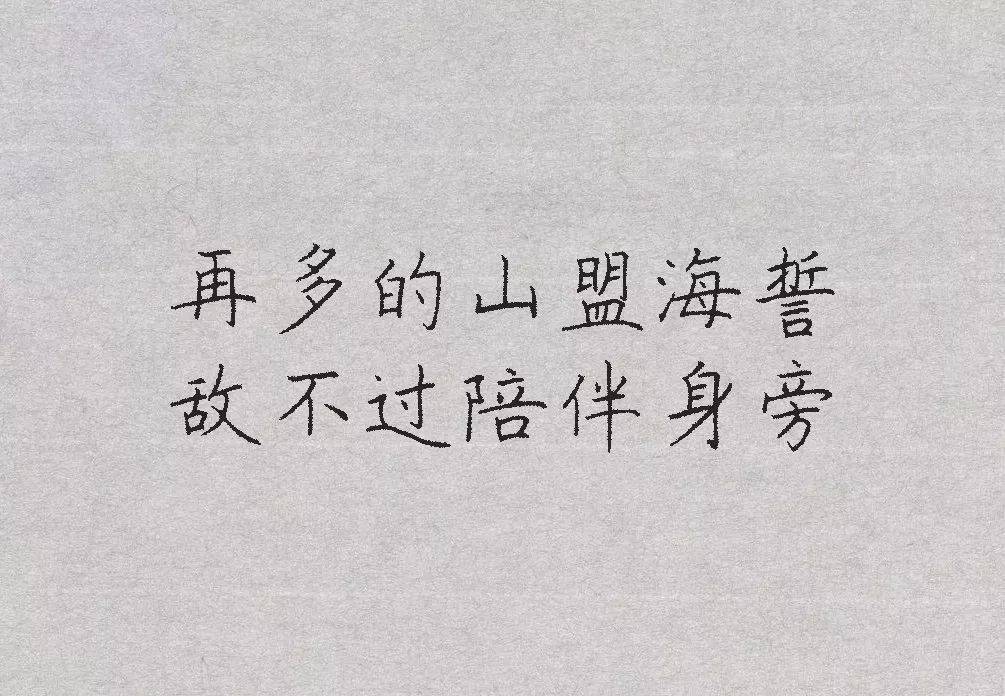 再多的山盟海誓
敌不过陪伴身旁